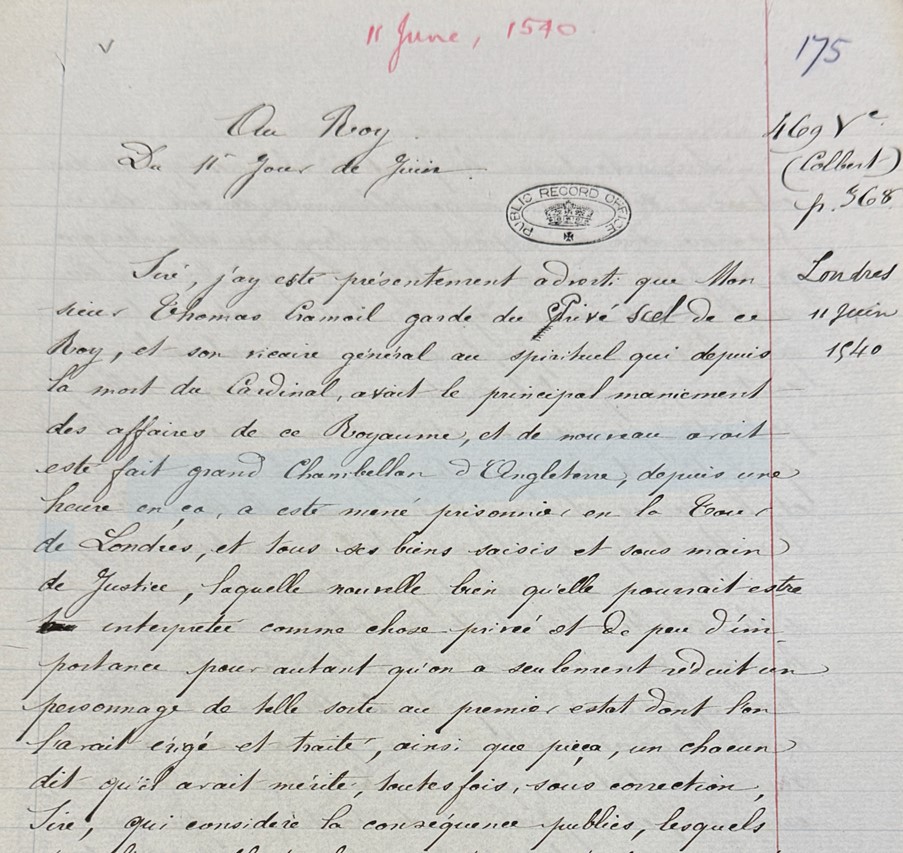 11 June, 1540.
175
Au Roy
Du 11e Jour de Juin
469 Vc
(Colbert)
p. 368
PUBLIC RECORD OFFICE
Londres
11 Juin
1540
Siré, j'ay esté présentement adverti que Mon
sieur Thomas Cramoil garde du Privé Scel de ce
Roy, et son vicaire général au spirituel qui depuis
la mort du Cardinal, avait le principal maniement
des affaires de ce Royaume, et de nouveau avait
esté fait grand Chambellan d'Angleterre, depuis une
heure en ça, a esté mené prisonnier en la Tour
de Londres, et tous ses biens saisis et sous main
de Justice, laquelle nouvelle bien qu'elle pourrait estre
interprétée comme chose privée et de peu d'im
portance pour autant qu'on a seulement réduit un
personnage de telle sorte au premier estat dont l'on
l'avait érigé et traité, ainsi que pieça, un chacun
dit qu'il avait mérité, toutesfois, sous correction,
Sire, qui considere la conséquence publics, lesquels